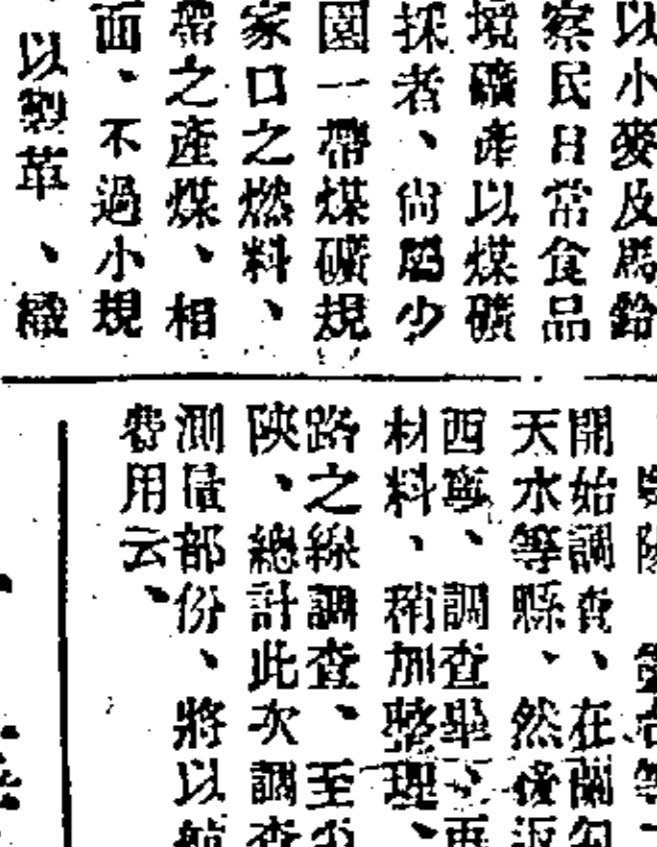 以小麥及馬鈴
察民日常食品
境礦產以煤礦
採者、尙屬少
園一帶煤礦規
家口之燃料、
帶之產煤、相
面、不過小規
以製革、織
開始調查、在蘭
天水等縣、然後返
西寧、調查畢、再
材料、稍加整理、
路之線調查、至
陝、總計此次調查
測量部份、將以
費用云、